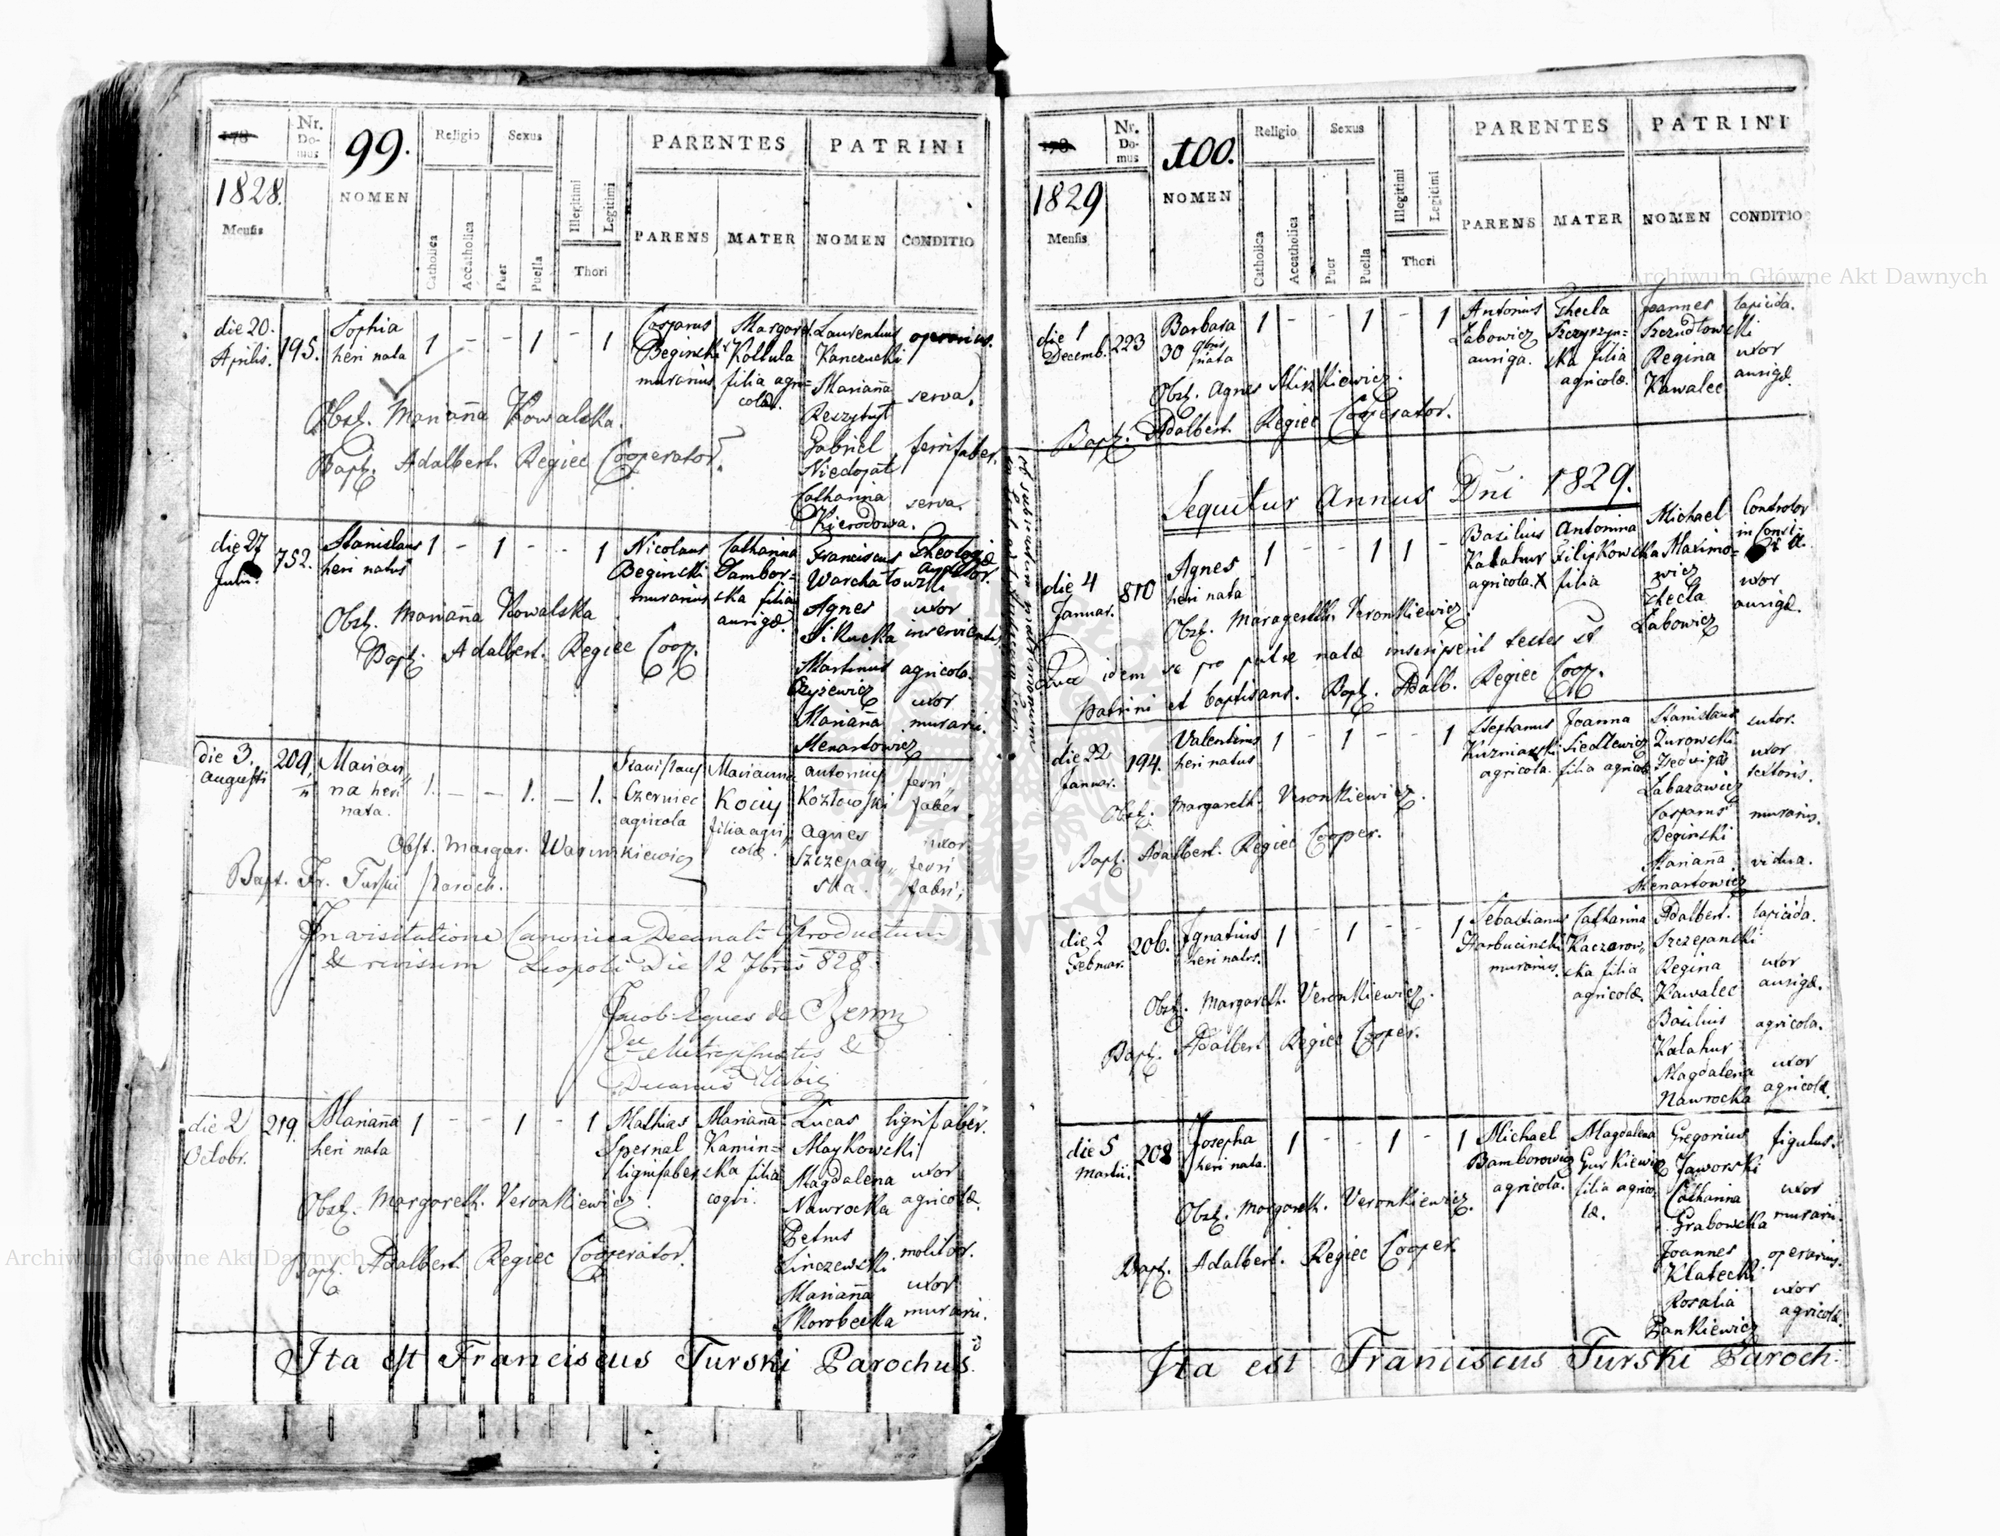 178
Nr. Do- mus
99.
Religio
Sexus
PARENTES
PATRINI
1828.
NOMEN
Illegitimi
Legitimi
Mensis
Catholica
Accatholica
Puer
Puella
Thori
PARENS
MATER
NOMEN
CONDITIO
die 20. Aprilis.
195.
Sophia
heri nata
1 - - 1 - 1
Casparus
Beginski
murarius.
Margaret.
Kottula
filia agri=
colae.
Laurentius
Kanczucki
operarius.
Marianna
serva.
Gabriel
Niedopat
ferri faber.
Catharina
Kierodowa.
serva.
Obst. Marianna Kowalska.
Bapt. Adalbert. Regiec Cooperator.
die 27
752.
Stanislaus
heri natus
1 - 1 - - 1
Nicolaus
Beginski
murarius
Catharina
Dambor=
ska filia
aurigae.
Franciscus
Warchatowski
Theologiae
Auditor.
Agnes
Sikucka
uxor
inservientis
Martinus
Czyzewicz
agricola.
Marianna
Menartowicz
uxor
murarii.
Obst. Marianna Kowalska
Bapt. Adalbert. Regiec Coop.
die 3.
augusti
209.
Marian„
na heri
nata.
1. - - 1. - 1.
Stanislaus
Czerniec
agricola
Marianna
Kociy
filia agri„
colae.
Antonius
Kozlowski
ferri„
faber
Agnes
Szczepan„
ska.
uxor
ferri
fabri.
Obst. Margar.
Bapt. Fr. Turski Paroch.
In visitatione Canonica Decanali Productum
& revisum Leopoli Die 12 7bris 828.
Jacob Eques de
die 2
Octobr.
219.
Marianna
heri nata
1 - - 1 - 1
Mathias
Spernal
lignifaber
Marianna
Kamin=
ska filia
coqui.
Lucas
Maykowski
lignifaber.
Magdalena
Nawrocka
uxor
agricolae.
Petrus
Linczewski
molitor.
Marianna
Skorobecka
uxor
murarii.
Obst. Margareth. Veronkiewicz.
Bapt. Adalbert. Regiec Cooperator.
Ita est Franciscus Turski Parochus.
178
Nr. Do- mus
100.
Religio
Sexus
PARENTES
PATRINI
1829
NOMEN
Illegitimi
Legitimi
Mensis
Catholica
Accatholica
Puer
Puella
Thori
PARENS
MATER
NOMEN
CONDITIO
die 1
Decemb.
223
Barbara
30 9bris
nata
1 - - 1 - 1
Antonius
Labowicz
auriga.
Thecla
ska filia
agricolae.
Joannes
Szczudlowski
lapicida.
Regina
Kawalec
uxor
aurigae.
Obst. Agnes Mirzkiewicz.
Bapt. Adalbert. Regiec Cooperator.
Sequitur Annus Dni 1829.
die 4
Januar.
810
Agnes
heri nata
1 - - 1 1 -
Basilius
Kalahur
agricola. X
Antonina
Filipkowska
filia
Michael
Maximo=
wicz
Controlor
in
Thecla
Labowicz
uxor
aurigae.
Obst. Maragereth. Veronkiewicz
Qua idem se pro patre natae inscripserit testes st
patrini et baptisans. Bapt. Adalb. Regiec Coop.
die 22
Januar.
194.
Valentinus
heri natus
1 - 1 - - 1
Stephanus
Kuzniarski
agricola.
Joanna
Siedlewicz
filia agricolae
Stanislaus
Zurowski
sutor.
Hedwigis
Labazawicz
uxor
textoris.
Casparus
Beginski
murarius.
Marianna
Menartowicz
vidua.
Obst. Margareth. Veronkiewicz.
Bapt. Adalbert. Regiec Cooper.
die 2
Februar.
206.
Ignatius
heri natus.
1 - 1 - - 1
Sebastianus
Harbucinski
murarius.
Catharina
Kaczarow„
ska filia
agricolae.
Adalbert.
Szczepanski
lapicida.
Regina
Kawalec
uxor
aurigae.
Basilius
Kalahur
agricola.
Magdalena
Nawrocka
uxor
agricolae.
Obst. Margareth. Veronkiewicz.
Bapt. Adalbert. Regiec Cooper.
die 5
Martii.
208
Josepha
heri nata.
1 - - 1 - 1
Michael
Bamborowicz
agricola.
Magdalena
Gurkiewicz
filia agrico
lae.
Gregorius
Jaworski
figulus.
Catharina
Grabowska
uxor
murarii.
Joannes
Klatecki
operarius.
Rosalia
Pankiewicz
uxor
agricolae.
Obst. Margareth. Veronkiewicz.
Bapt. Adalbert. Regiec Cooper.
Ita est Franciscus Turski Paroch.
Archiwum Główne Akt Dawnych
Archiwum Główne Akt Dawnych